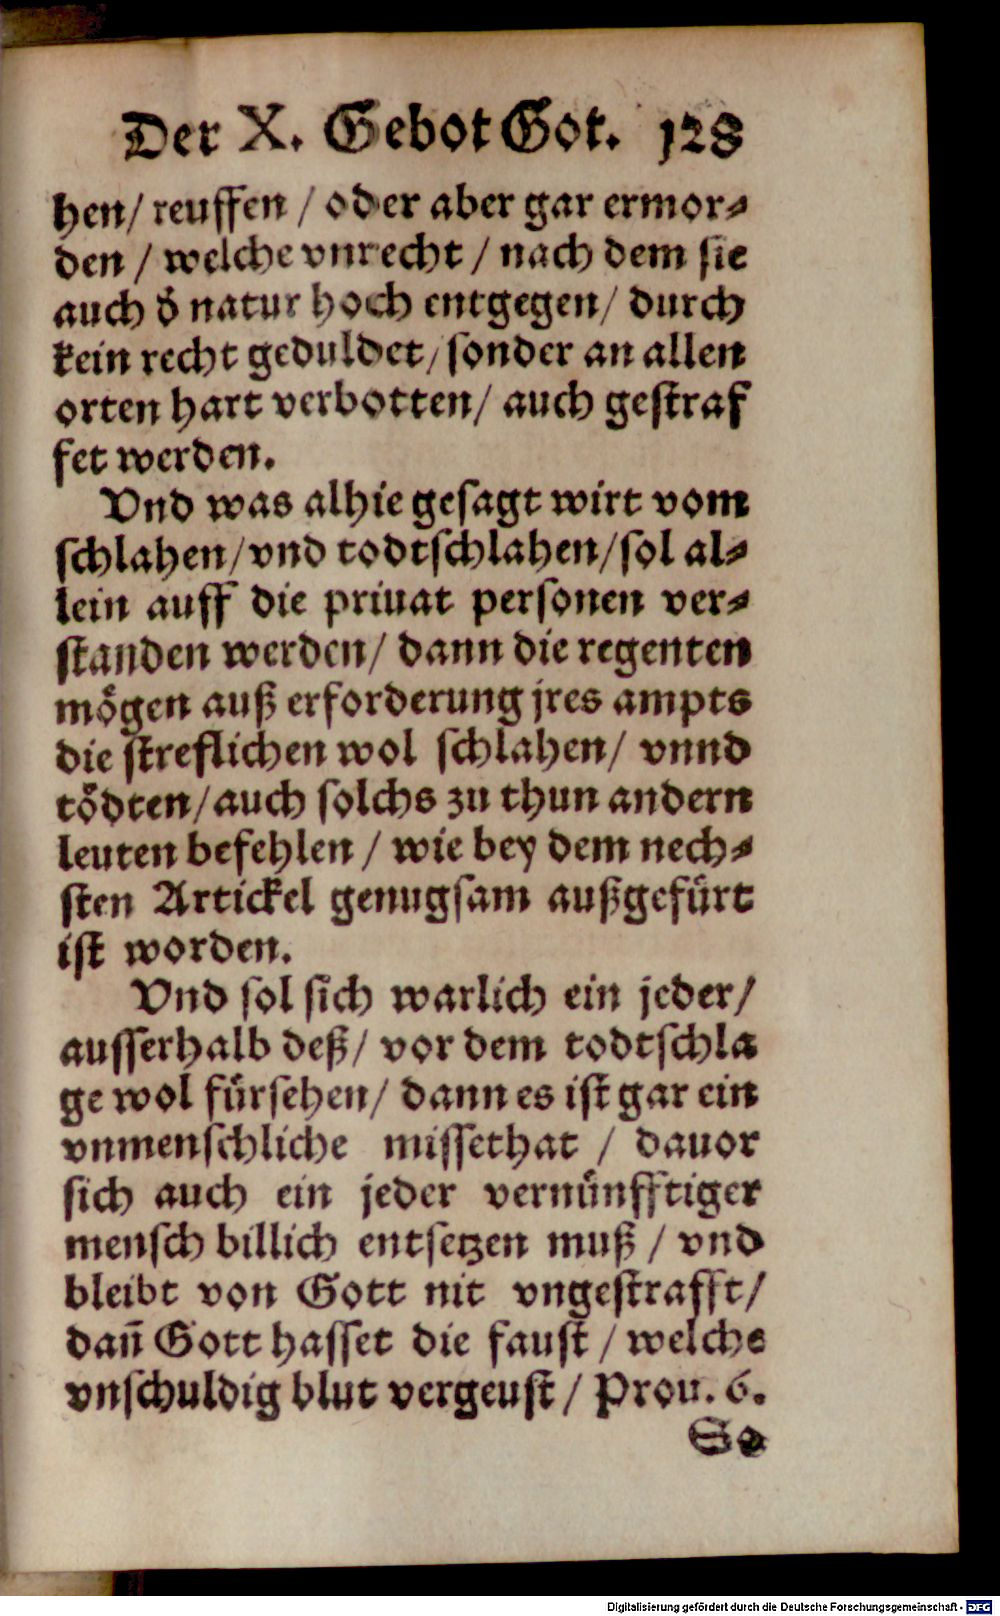 Der X. Gebot Got. 128
hen/ reuffen / oder aber gar ermor⸗
den / welche vnrecht / nach dem sie
auch d̕ natur hoch entgegen/ durch
kein recht geduldet/ sonder an allen
orten hart verbotten/ auch gestraf
fet werden.
Vnd was alhie gesagt wirt vom
schlahen/ vnd todtschlahen/ sol al⸗
lein auff die priuat personen ver⸗
standen werden/ dann die regenten
mögen auß erforderung jres ampts
die streflichen wol schlahen/ vnnd
tödten/ auch solchs zu thun andern
leuten befehlen / wie bey dem nech⸗
sten Artickel genugsam außgefürt
ist worden.
Vnd sol sich warlich ein jeder/
ausserhalb deß/ vor dem todtschla
ge wol fürsehen/ dann es ist gar ein
vnmenschliche missethat / dauor
sich auch ein jeder vernünfftiger
mensch billich entsetzen muß / vnd
bleibt von Gott nit vngestrafft/
dan̄ Gott hasset die faust / welche
vnschuldig blut vergeust / Prou. 6.
So
Digitalisierung gefördert durch die Deutsche Forschungsgemeinschaft - DFG